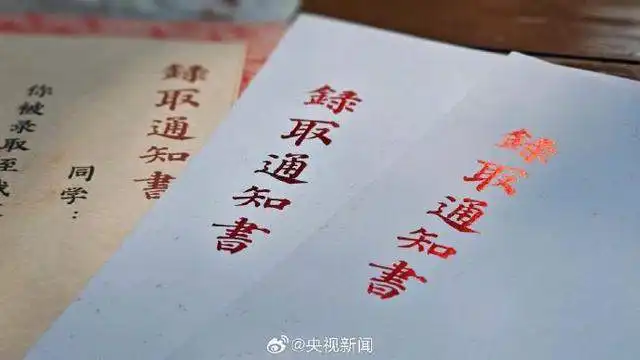 録取通知書
同学：
你被录取至
録取通知書
録取通知書
@央视新闻